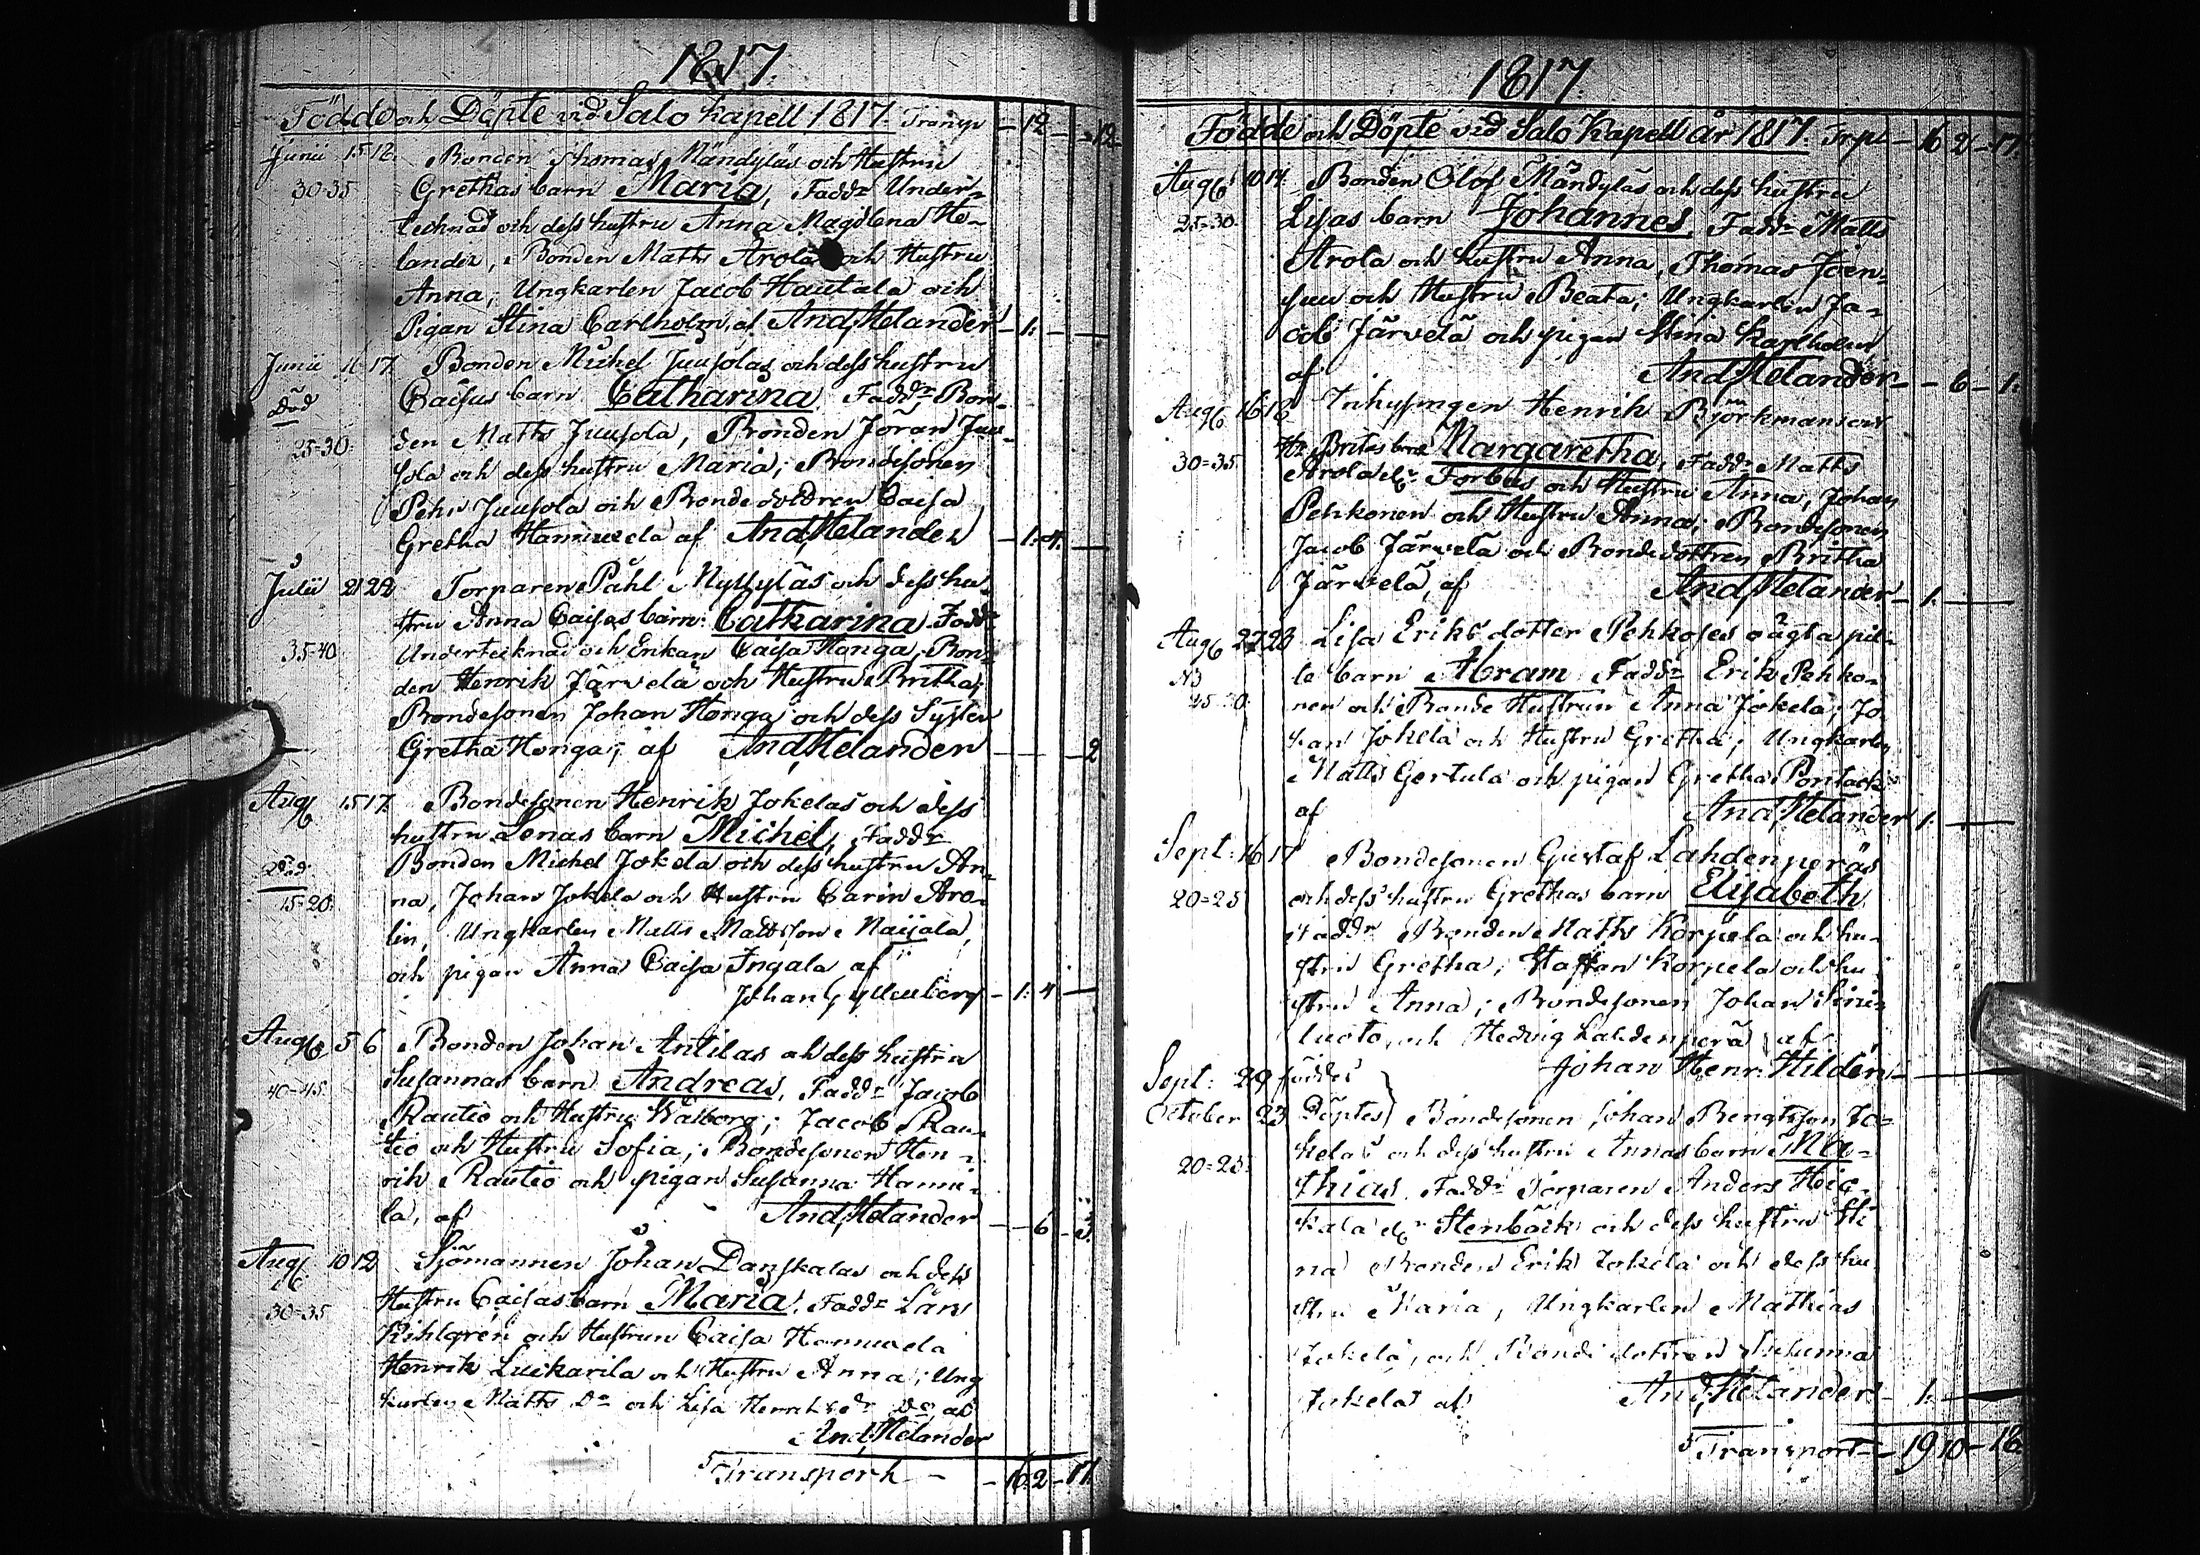 1817.
Födde och Döpte vid Salo Kapell 1817. Transp – 12 – – 12 –
Junii 15 18. Bonden Thomas Mändyläs och Hustru
30-35 Grethas barn Maria, Fadd:r Under=
tecknad och dess hustru Anna Magdlena He-
lander, Bonden Matts Arola och Hustru
Anna; Ungkarlen Jacob Hautala och
Pigan Stina Carlholm, af And. Helander – 1: –
Junii 16 17. Bonden Michel Juusolas och dess hustru
Död Caisas barn Catharina Fadd:r Bon-
25-30. den Matts Juusola, Bonden Jöran Juu-
sola och dess hustru Maria; Bondesonen
Pehr Juusola och Bondedottren Caisa
Gretha Hannuxela af And. Helander – 1: 4. –
Julii 21 22 Torparen Påhl Myllyläs och dess hu-
stru Anna Caisas barn Catharina Fadd:r
35-40 Undertecknad och Enkan Caisa Honga, Bon-
den Henrik Järvelä och Hustru Britha;
Bondesonen Johan Honga och dess Syster
Gretha Honga; af And. Helander – – 2
Aug. 15 17. Bondesonen Henrik Jokelas och dess
hustru Lenas barn Michel, Fadd:r
Död Bonden Michel Jokela och dess hustru An-
15-20. na, Johan Jokela och Hustru Carin Aro-
lin, Ungkarlen Matts Mattsson Naijala,
och pigan Anna Caisa Ingala af
Johan Gyllenberg – 1: 4 –
Aug. 5 6 Bonden Johan Antilas och dess hustru
40-45. Susannas barn Andreas, Fadd:r Jacob
Rautio och Hustru Walborg; Jacob Rau-
tio och Hustru Sofia; Bondesonen Hen-
rik Rautio och pigan Susanna Hanni-
la, af And. Helander – 6 – 3.
Aug. 10 12 Sjömannen Johan Danskalas och dess
30-35 Hustru Caisas barn Maria, Fadd:r Lars
Kihlgrén och Hustrun Caisa Hannuxela
Henrik Luikarila och Hustru Anna; Ung
karlen Matts D:o och Lisa Henriksd:r D:o af
And. Helander
Transport – – 16: 2 – 17.
1817.
Födde och Döpte vid Salo Kapell år 1817. Trspt – 16 2 – 17.
Aug. 10 14. Bonden Olof Mändyläs och dess hustru
25-30. Lisas barn Johannes, Fadd:r Matts
Arola och hustru Anna, Thomas Joen-
suu och Hustru Beata; Ungkarlen Ja-
cob Järvelä och pigan Stina Karlholm
af And. Helander – – 6 – 1.
Aug. 16 18 Inhysingen Henrik Björkmansons
30-35. H:r Britas barn Margaretha, Fadd:r Matts
Arola el:r Forbus och Hustru Anna, Johan
Pehkonen och Hustru Anna; Bondesonen
Jacob Järvelä och Bondedottren Britha
Järvelä, af And. Helander – 1. –
Aug. 27 28 Lisa Eriks dotter Pehkoses oägta pil-
N3 te barn Abram Fadd:r Erik Pehko-
25-30. nen och Bonde Hustrun Anna Jokela; Jo-
han Jokela och Hustru Gretha; Ungkarlen
Matts Gertula och pigan Gretha Pontack
af And. Helander 1. –
Sept: 16 17 Bondesonen Gustaf Lahdenperäs
20-25 och dess hustru Grethas barn Elisabeth
Fadd:r Bonden Matts Korpela och hu-
stru Gretha; Staffan Korpela och hu-
stru Anna; Bondesonen Johan Sini-
luoto, och Hedvig Lahdenperä af
Johan Henr: Hildén –
Sept: 29 föddes
October 23 Döptes } Bondesonen Johan Bengtsson Jo=
20-25. kelas och dess hustru Annas barn Ma=
thias, Fadd:r Torparen Anders Heic-
kala el:r Stenbäck och dess hustru Sti-
na Bonden Erik Jokela och dess hu-
stru Maria, Ungkarlen Mathias
Jokela, och Bonde dottren Johanna
Jokela af And. Helander – 1. –
Transport – 19 10 – 18.